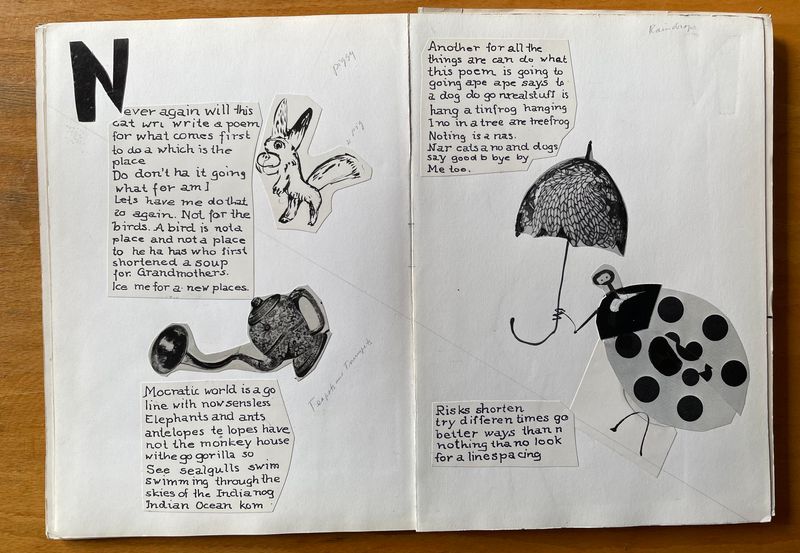 Never again will this
cat wri write a poem
for what comes first
to do a which is the
place
Do don't ha it going
what for am I
Lets have me do that
so again. Not for the
birds. A bird is not a
place and not a place
to he ha has who first
shortened a soup
for Grandmothers.
Ice me for a new places.
Mocratic world is a go
line with nowsensless
Elephants and ants
antelopes te lopes have
not the monkey house
withe go gorilla so
See sealgulls swim
swimming through the
skies of the Indianog
Indian Ocean kom
Teapots and Trumpets
Raindrops
Another for all the
things are can do what
this poem is going to
going ape ape says to
a dog do go nrealstuff is
hang a tinfrog hanging
I no in a tree are treefrog
Noting is a nas.
Nar cats a no and dogs
say good b bye by
Me too.
Risks shorten
try differen times go
better ways than n
nothing tha no look
for a linespacing